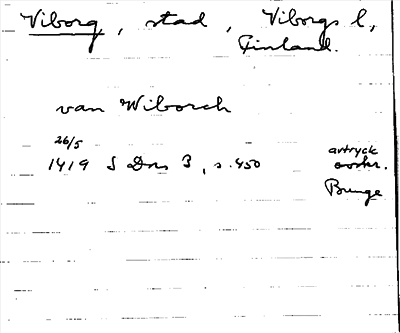 Viborg, stad, Viborgs l,
Finland.
van Wiborch
26/5
1419 S Dns 3, s. 450
avtryck
Bunge